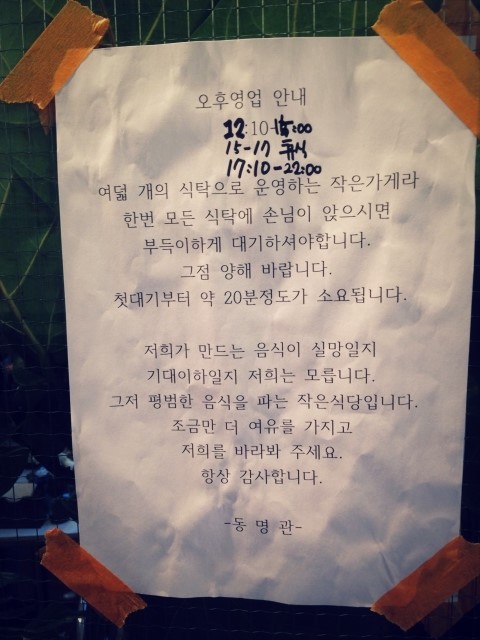 오후영업 안내
12:10-15:00
15-17 휴식
17:10-22:00
여덟 개의 식탁으로 운영하는 작은가게라
한번 모든 식탁에 손님이 앉으시면
부득이하게 대기하셔야합니다.
그점 양해 바랍니다.
첫대기부터 약 20분정도가 소요됩니다.
저희가 만드는 음식이 실망일지
기대이하일지 저희는 모릅니다.
그저 평범한 음식을 파는 작은식당입니다.
조금만 더 여유를 가지고
저희를 바라봐 주세요.
항상 감사합니다.
-동 명 관-